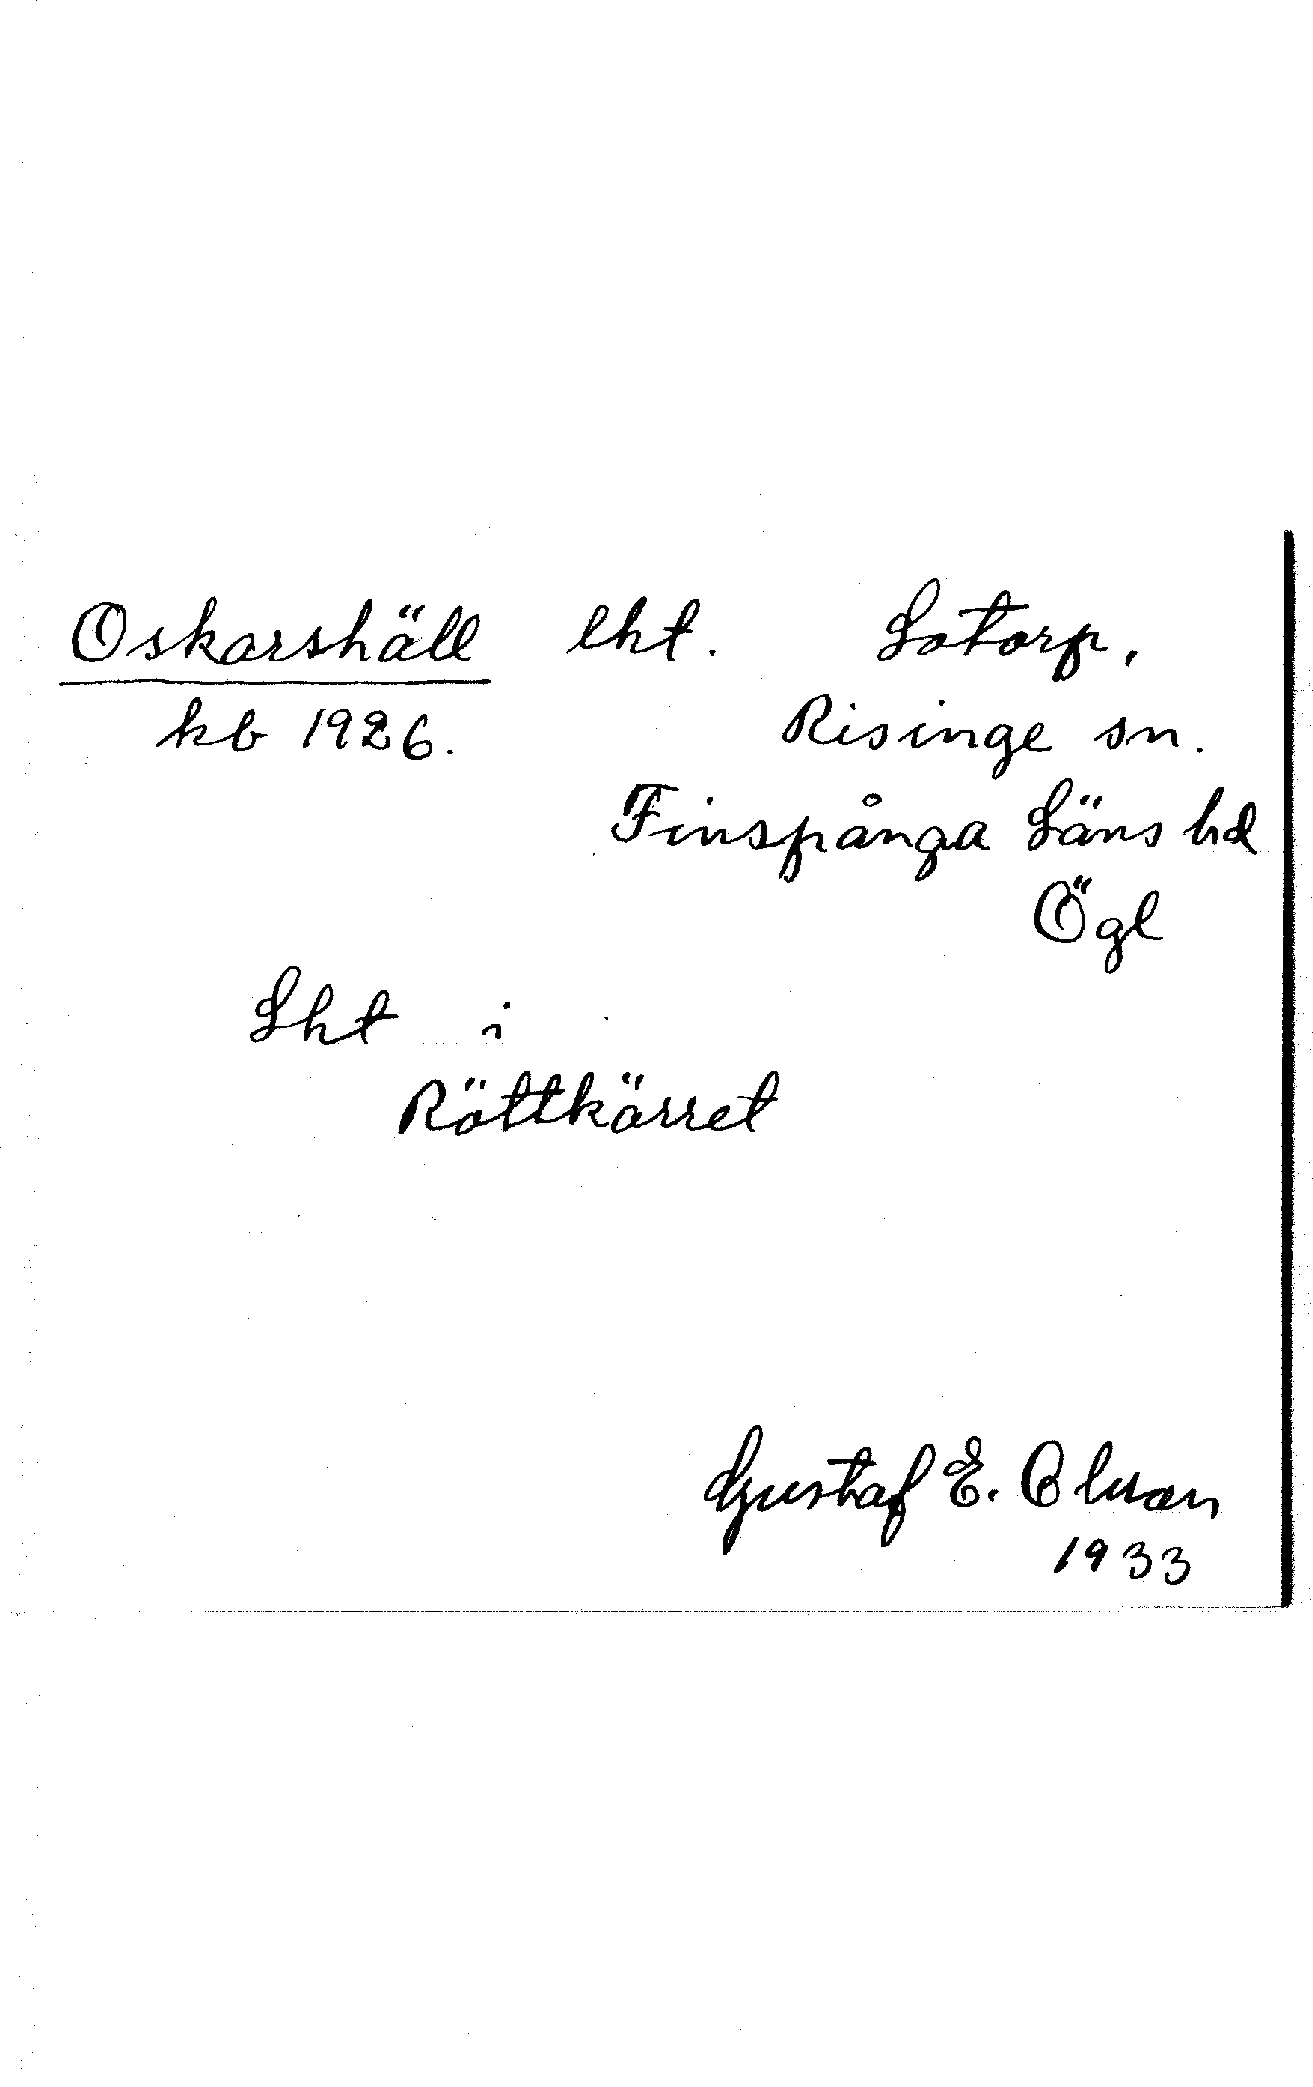 Oskarshäll lht. Lotorp,
kb 1926. Risinge sn.
Finspånga Läns hd
Ögl
Lht i
Röttkärret
Gustaf E. Olsson
1933